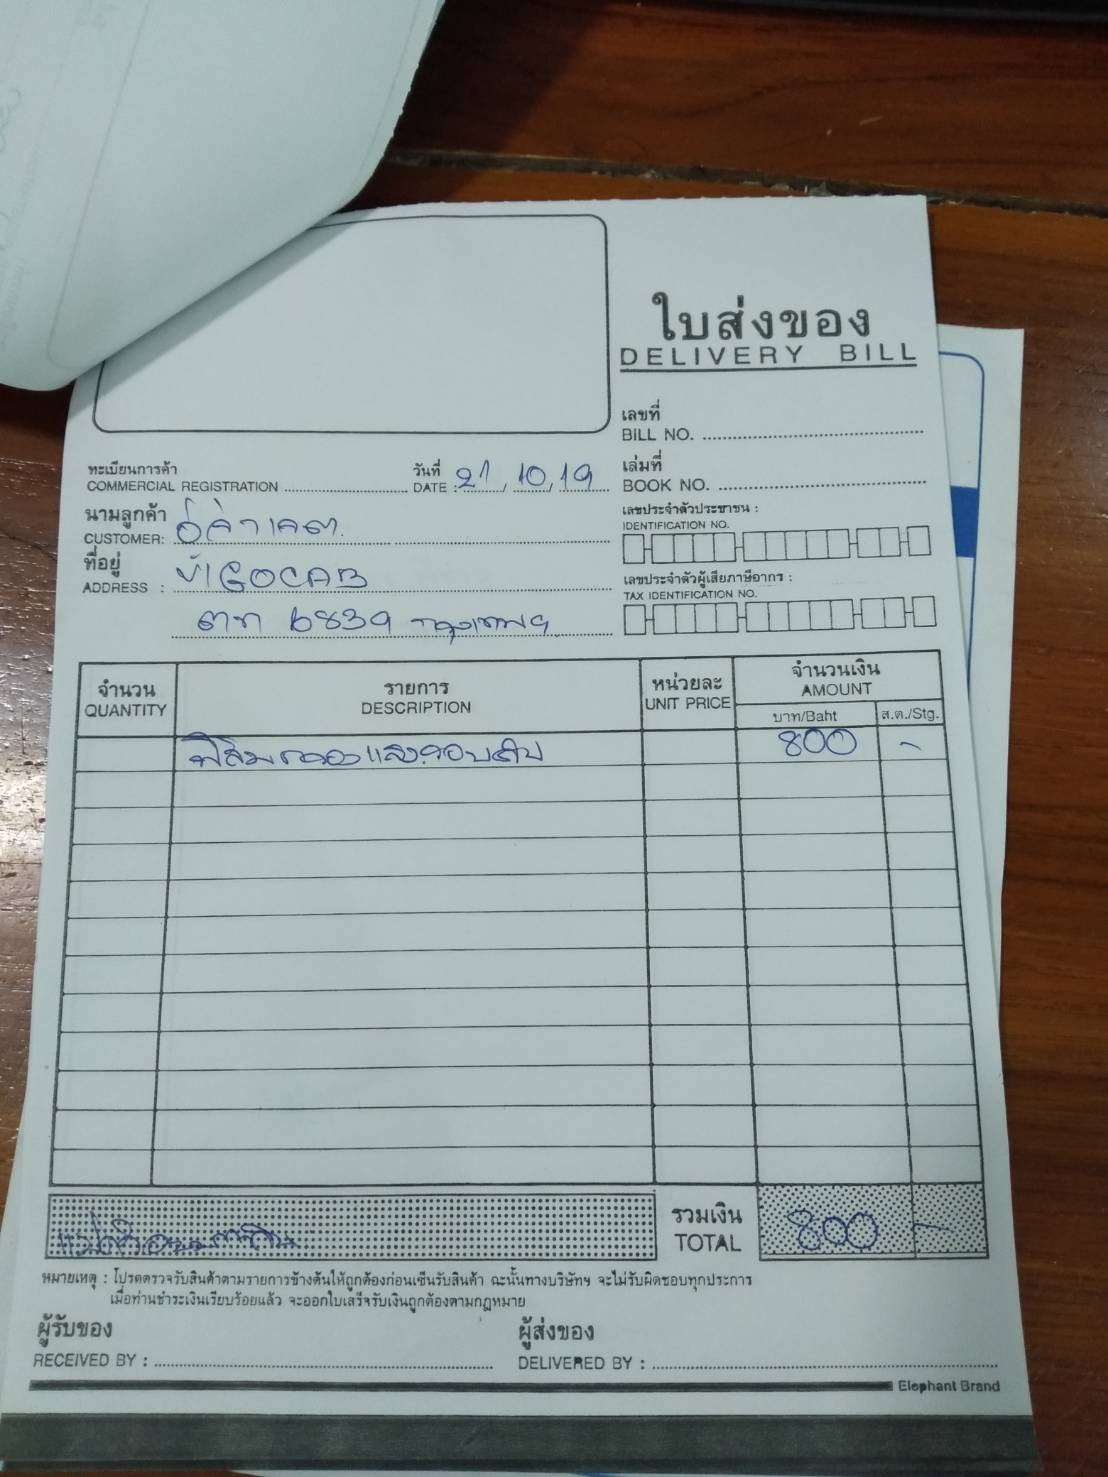 ใบส่งของ
DELIVERY BILL
เลขที่
BILL NO.
ทะเบียนการค้า
COMMERCIAL REGISTRATION
วันที่
DATE : 21, 10, 19
เล่มที่
BOOK NO.
นามลูกค้า
CUSTOMER: อู่ค้าเคต
เลขประจำตัวประชาชน :
IDENTIFICATION NO.
ที่อยู่
ADDRESS : VIGOCAB
เลขประจำตัวผู้เสียภาษีอากร :
TAX IDENTIFICATION NO.
6839 กรุงเทพฯ
จำนวน
QUANTITY
รายการ
DESCRIPTION
หน่วยละ
UNIT PRICE
จำนวนเงิน
AMOUNT
บาท/Baht
ส.ต./Stg.
ฟิล์มกรองแสงรอบคัน 800 -
รวมเงิน
TOTAL
800 -
หมายเหตุ : โปรดตรวจรับสินค้าตามรายการข้างต้นให้ถูกต้องก่อนเซ็นรับสินค้า ฉะนั้นทางบริษัทฯ จะไม่รับผิดชอบทุกประการ
เมื่อท่านชำระเงินเรียบร้อยแล้ว จะออกใบเสร็จรับเงินถูกต้องตามกฎหมาย
ผู้รับของ
RECEIVED BY :
ผู้ส่งของ
DELIVERED BY :
Elephant Brand